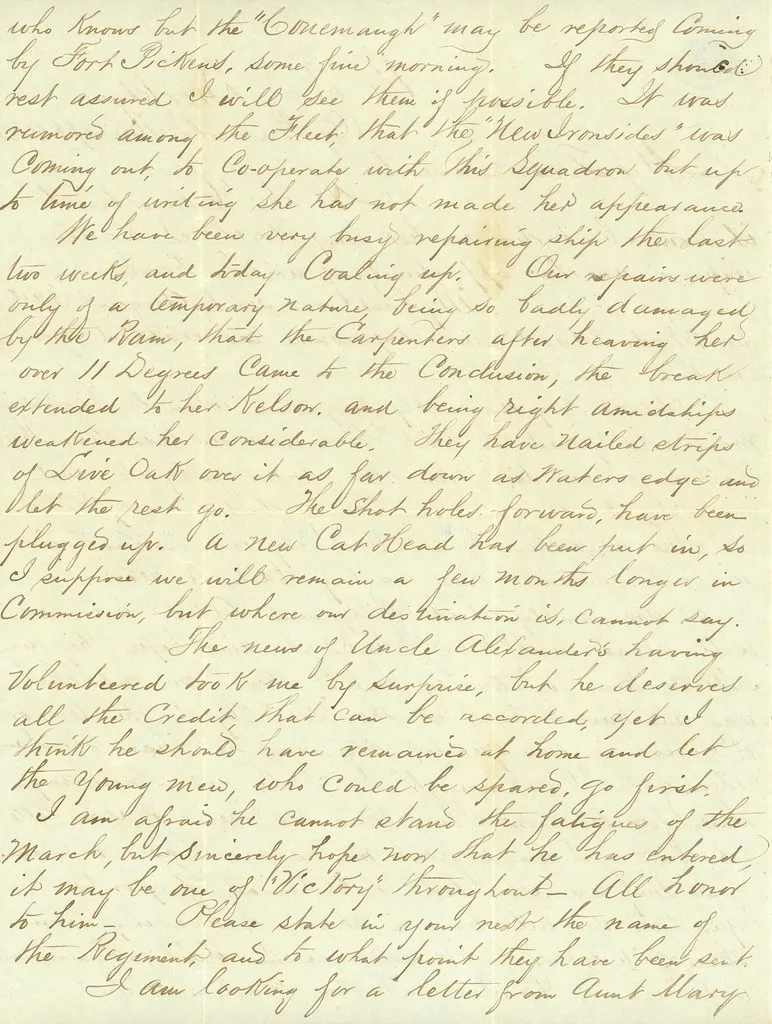 who knows but the "Conemaugh" may be reported coming
by Fort Pickens, some fine morning. If they should
rest assured I will see them if possible. It was
rumored among the Fleet, that the "New Ironsides" was
Coming out, to Co-operate with this Squadron but up
to time of writing she has not made her appearance.
We have been very busy repairing ship the last
two weeks, and today Coaling up. Our repairs were
only of a temporary nature, being so badly damaged
by the Ram, that the Carpenters after heaving her
over 11 Degrees Came to the Conclusion, the break
extended to her Kelson. and being right amidships
weakened her considerable. They have nailed strips
of Live Oak over it as far down as Waters edge and
let the rest go. The Shot holes forward, have been
plugged up. A new Cat Head has been put in, so
I suppose we will remain a few months longer in
Commission, but where our destination is, cannot say.
The news of Uncle Alexander's having
Volunteered took me by surprise, but he deserves
all the Credit, that can be accorded, yet I
think he should have remained at home and let
the young men, who could be spared, go first.
I am afraid he cannot stand the fatigues of the
March, but Sincerely hope now that he has entered,
it may be one of "Victory" throughout— All honor
to him— Please state in your next the name of
the Regiment, and to what point they have been sent.
I am looking for a letter from Aunt Mary